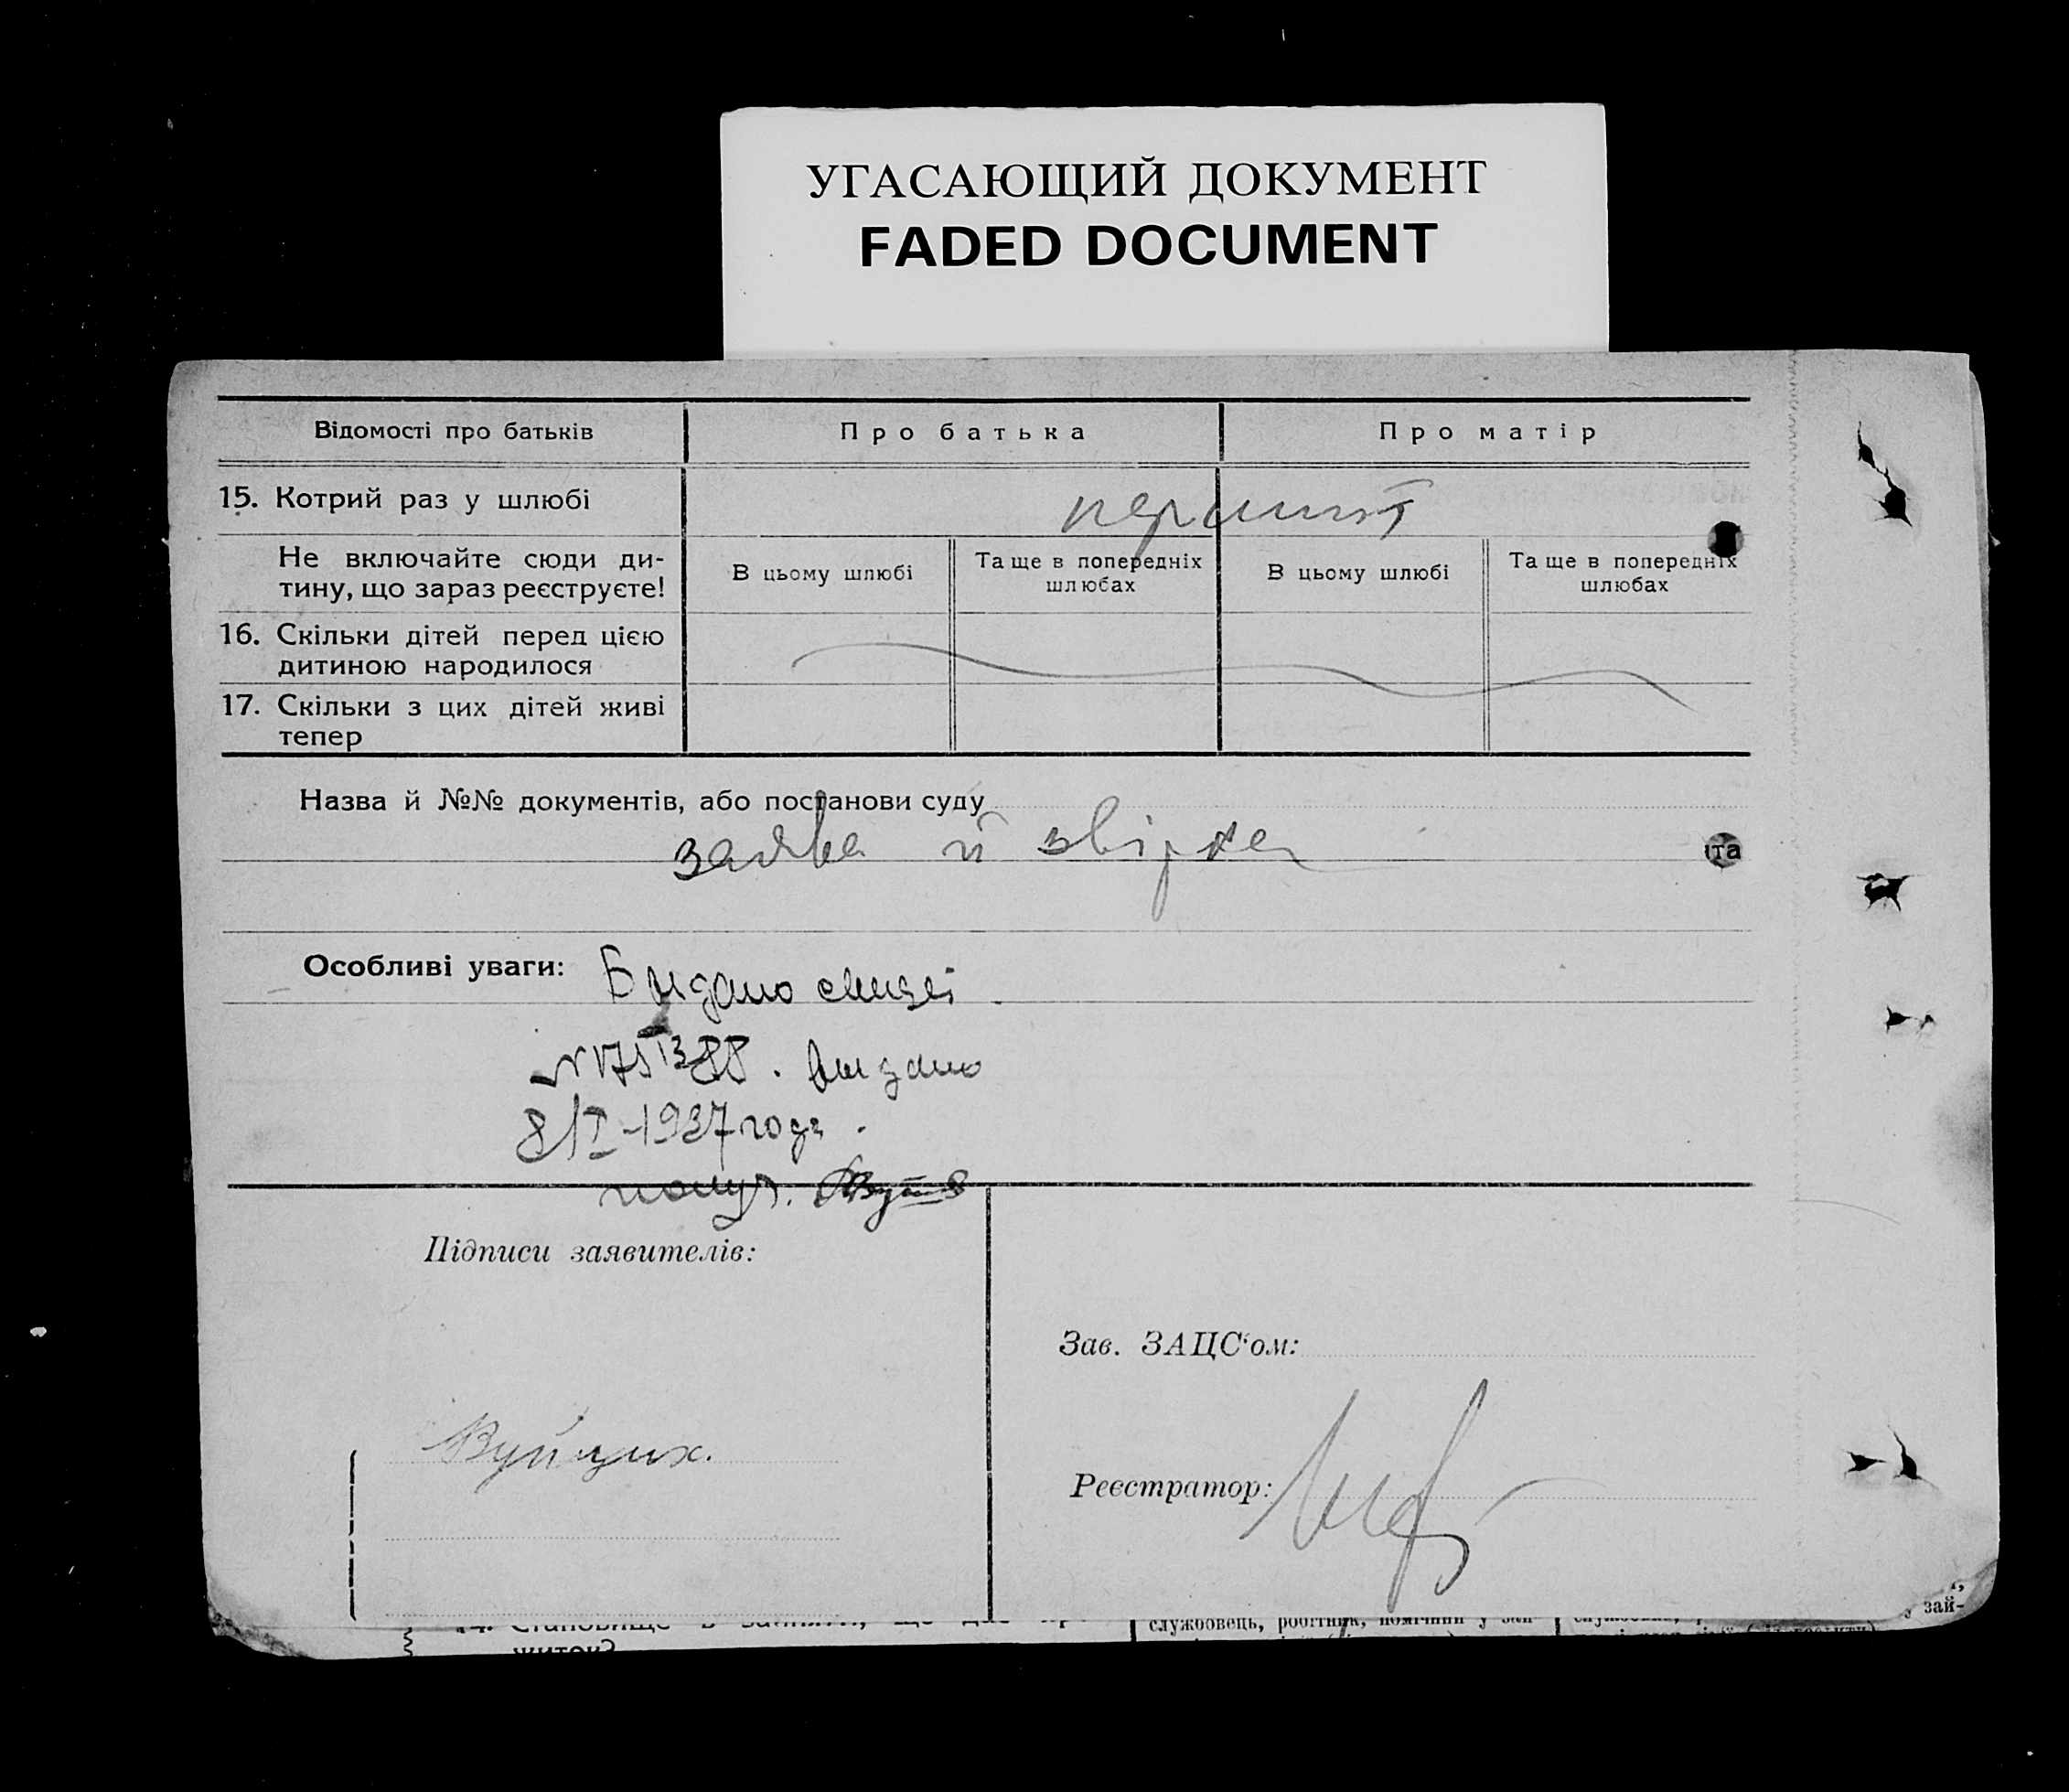 УГАСАЮЩИЙ ДОКУМЕНТ
FADED DOCUMENT
Відомості про батьків
Про батька
Про матір
15. Котрий раз у шлюбі
перший
Не включайте сюди ди-
тину, що зараз реєструєте!
В цьому шлюбі
Та ще в попередніх
шлюбах
В цьому шлюбі
Та ще в попередніх
шлюбах
16. Скільки дітей перед цією
дитиною народилося
17. Скільки з цих дітей живі
тепер
Назва й №№ документів, або постанови суду
заява й звірка
та
Особливі уваги:
Выдано
выдано
8/I-1937 года.
Підписи заявителів:
Зав. ЗАЦС‘ом:
Вуйцик.
Реєстратор:
14. Становище в занятті, що дає
житок?
службовець, робітник,
зай-